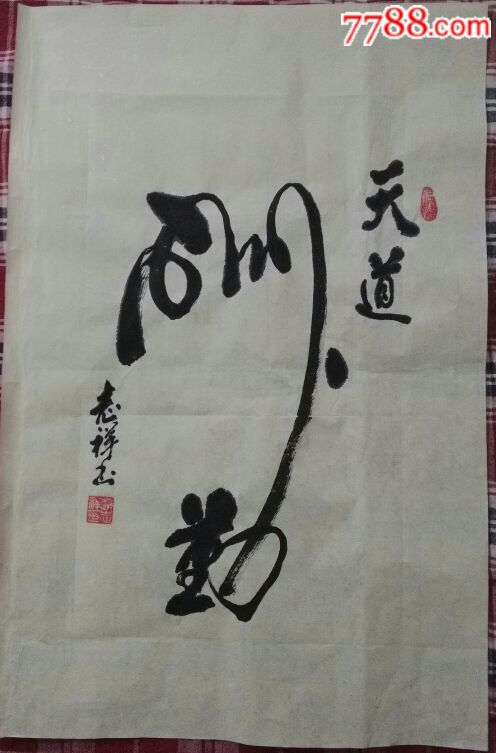 7788.com
天道
酬
勤
志祥书